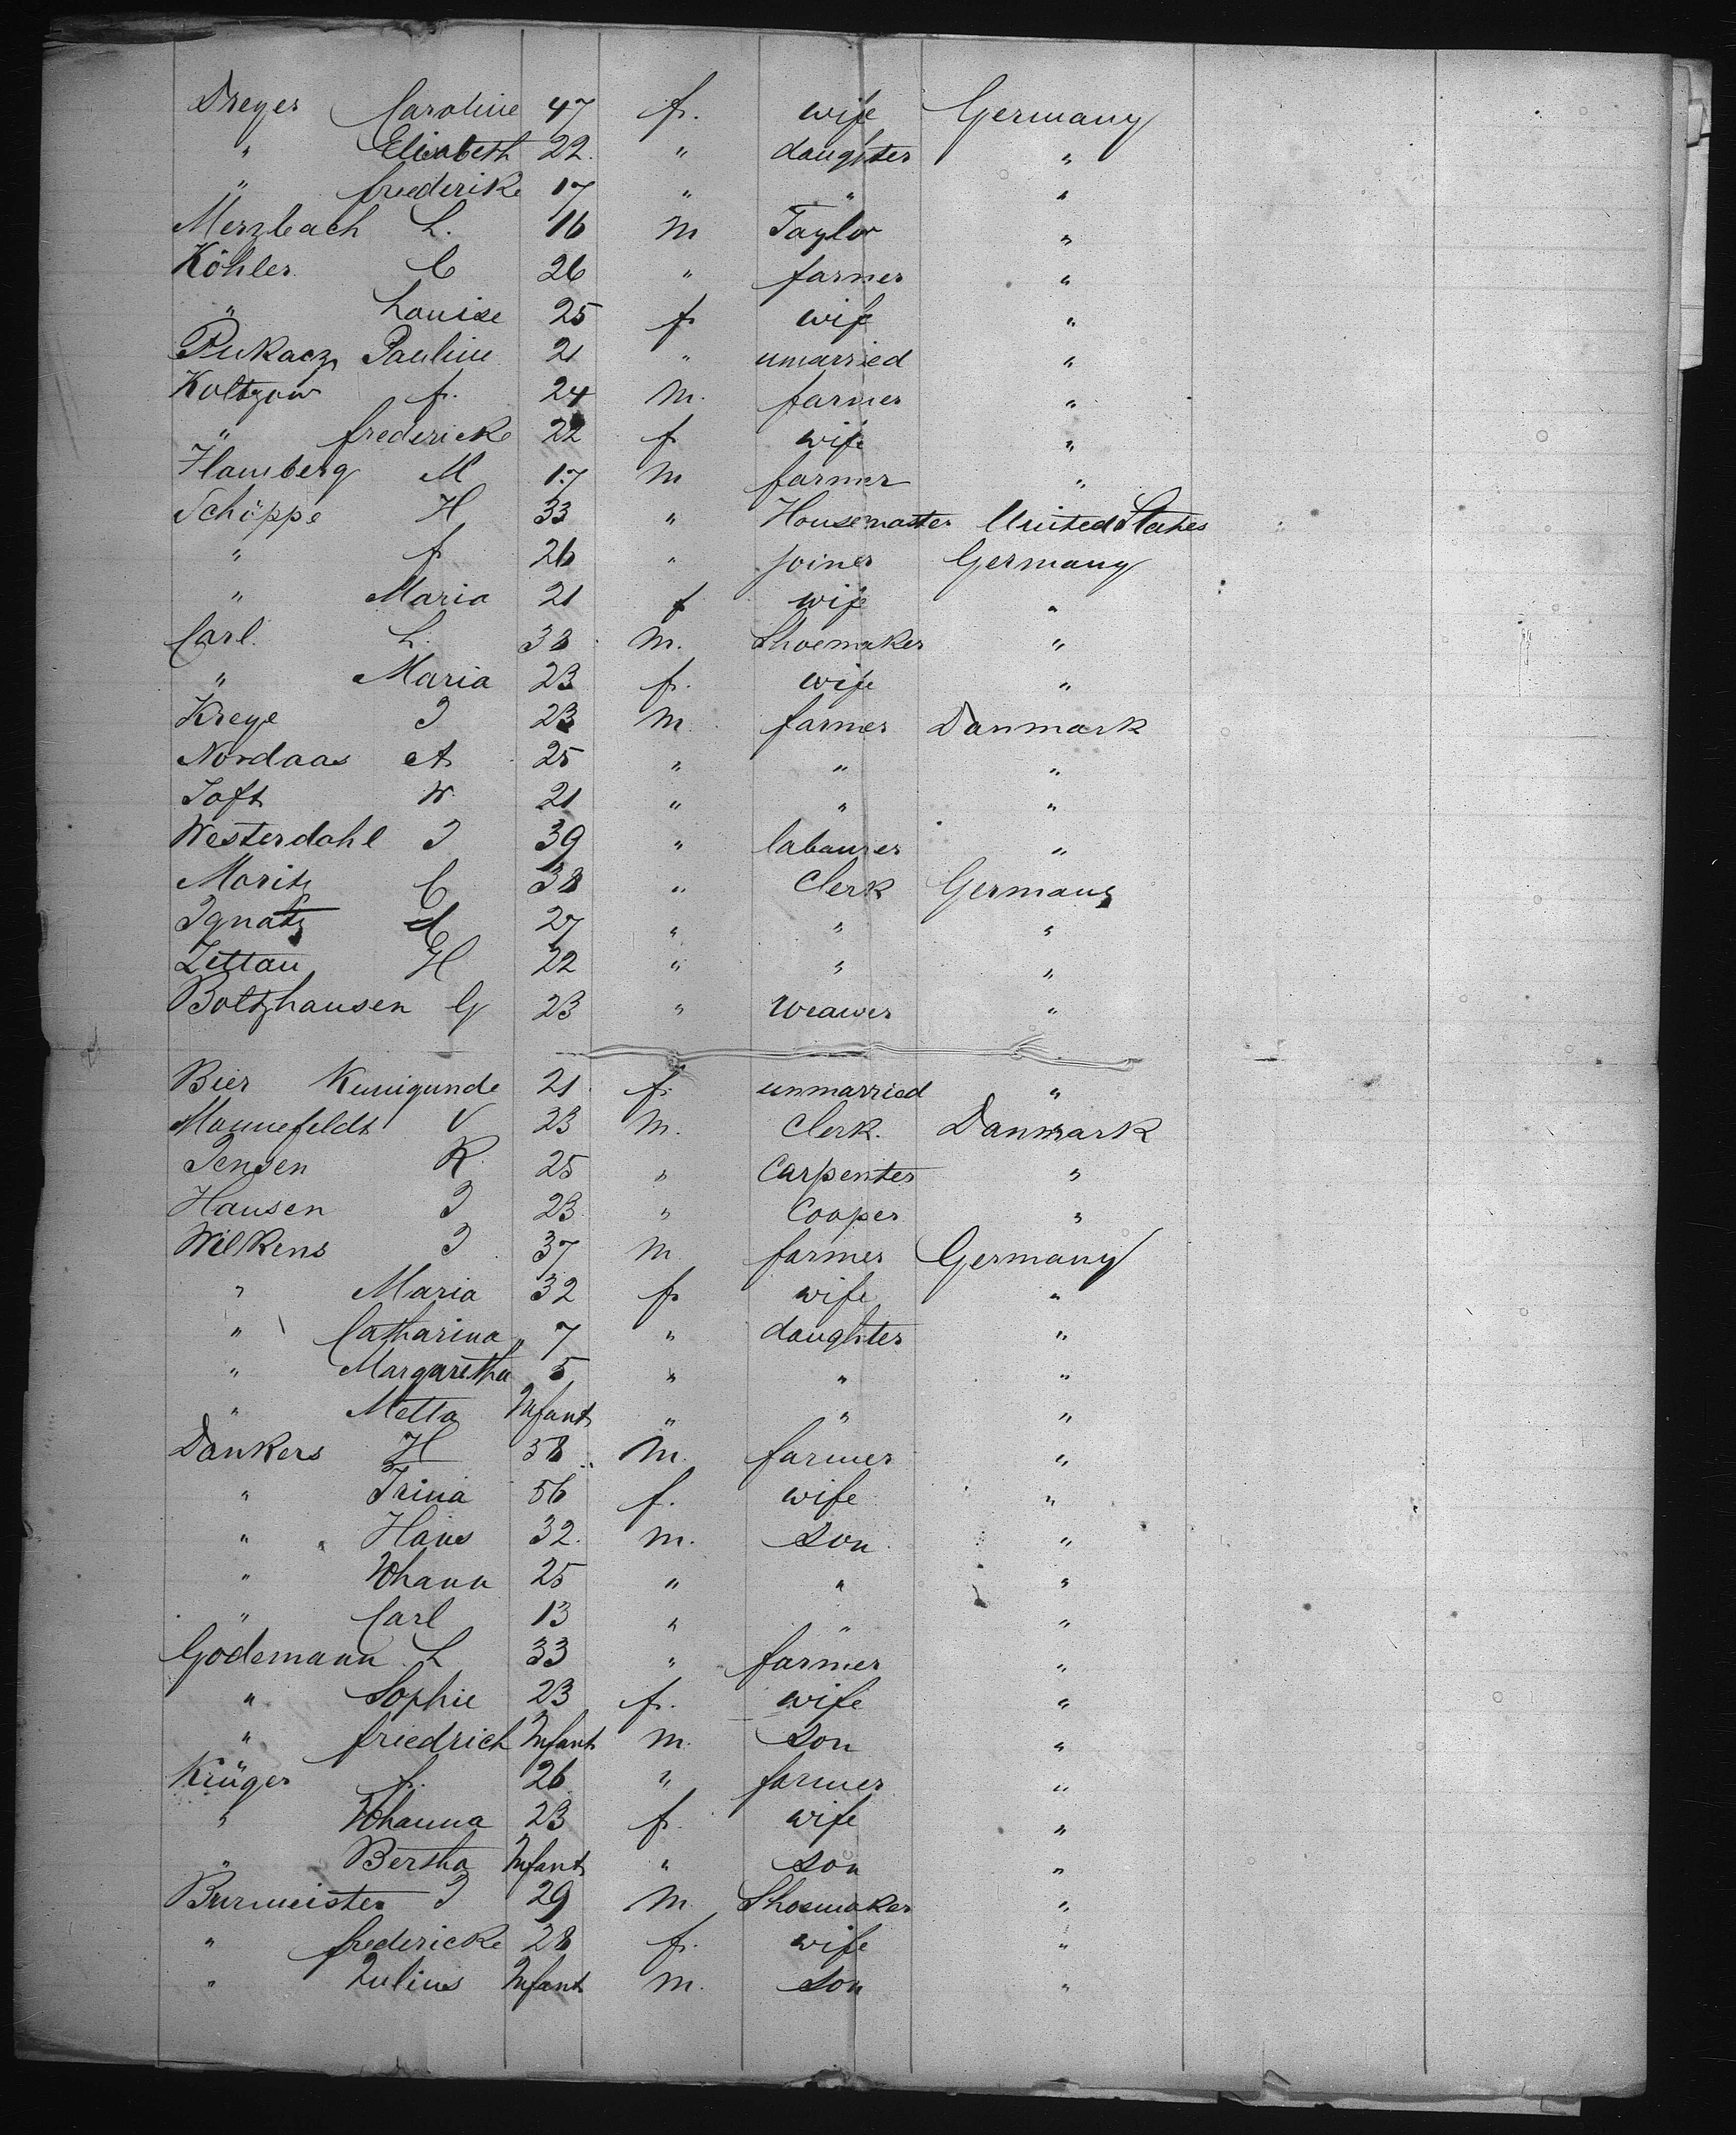 Dreyer Caroline 47 f. wife Germany
" Elisabeth 22. " daughter "
" frederike 17 " " "
Merzbach L. 16 m Taylor "
Köhler C 26 " farmer "
" Louise 25 f wife "
Pukacz Pauline 21 " unmarried "
Koltzow f. 24 m. farmer "
" fredericke 22 f wife "
Flamberg M 17 m farmer "
Schöppe H 33 " Housemaster United States
" f 26 " joiner Germany
" Maria 21 f wife "
Carl L. 38 m. Shoemaker "
" Maria 23 f. wife "
Kreye J 23 m. farmer Danmark
Nordaas A 25 " " "
Toft N. 21 " " "
Westerdahl J 39 " labaurer "
Moritz C 38 " Clerk Germany
Ignatz 27 " " "
Zettau H 22 " " "
Boltzhausen G 23 " Weawer "
Bier Kunigunde 21 f. unmarried "
Mannefeldt V 23 m. Clerk. Danmark
Jensen R. 25 " Carpenter "
Hansen J 23 " Cooper "
Wilkens J 37 m farmer Germany
" Maria 32 f wife "
" Catharina 7 " daughter "
" Margaretha 5 " " "
" Metta Infant " " "
Dankers H 58 m. farmer "
" Trina 56 f. wife "
" Hans 32. m. son "
" Johann 25 " " "
" Carl 13 " " "
Godemann L 33 " farmer "
" Sophie 23 f. wife "
" friedrich Infant m. son "
Krüger f. 26 " farmer "
" Johanna 23 f. wife "
" Bertha Infant " son "
Burmeister J 29 m. Shoemaker "
" fredericke 28 f. wife "
" Julius Infant m. son "